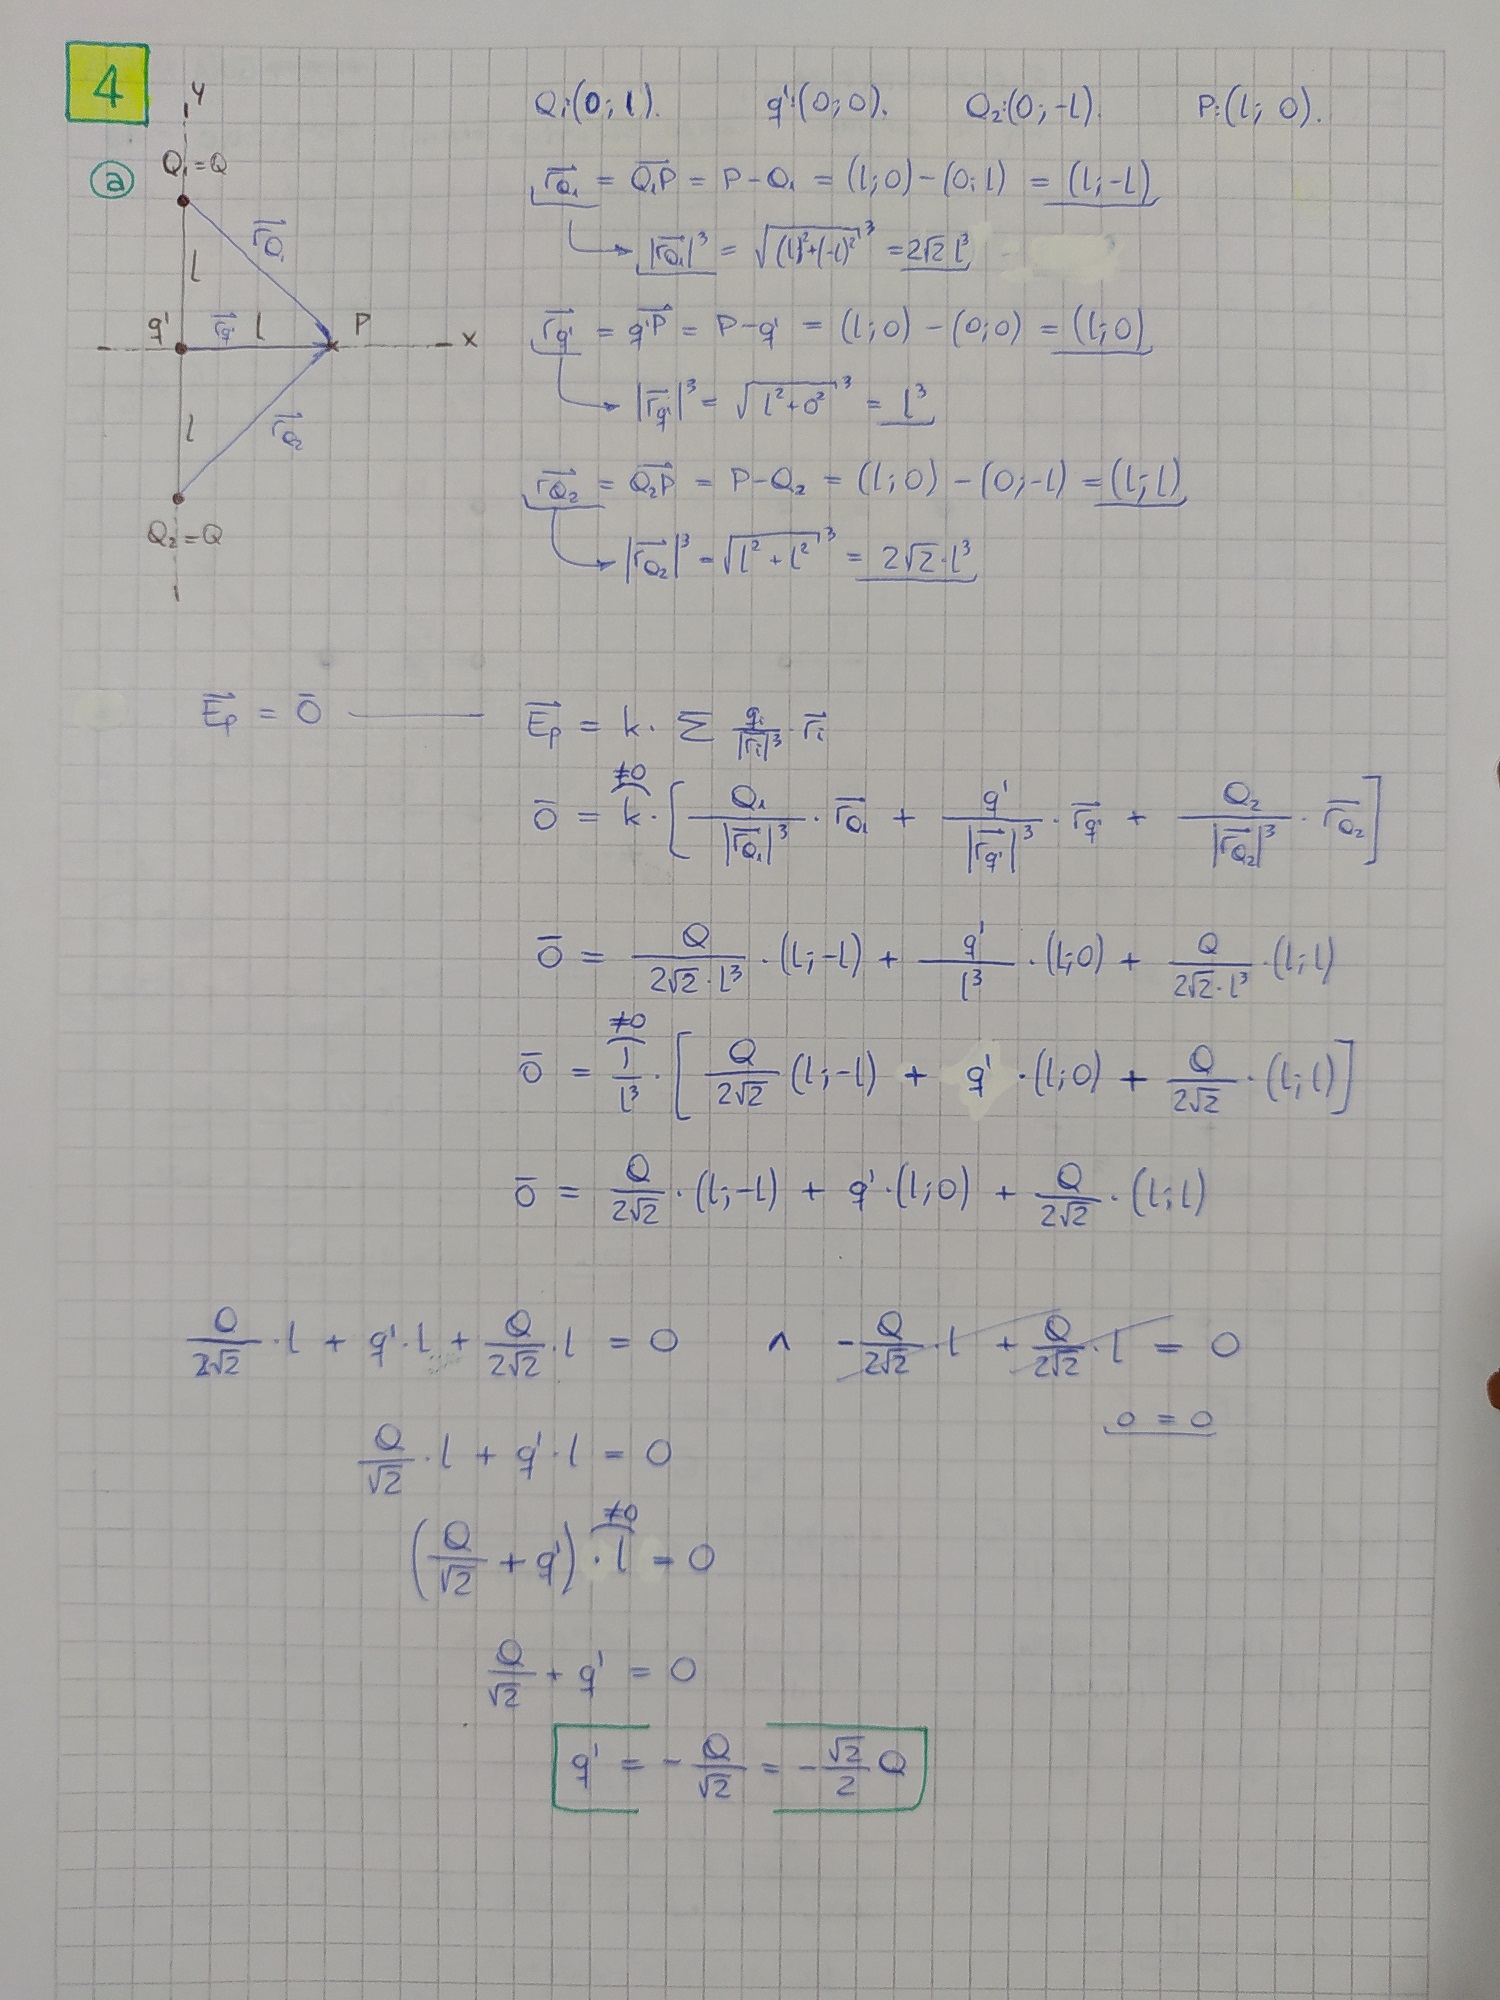 4
a
y
Q₁=Q
r⃗Q₁
l
q' r⃗q' l P x
l
r⃗Q₂
Q₂=Q
Q₁:(0; l). q':(0; 0). Q₂:(0; -l). P:(l; 0).
r⃗Q₁ = Q₁P⃗ = P-Q₁ = (l;0)-(0;l) = (l;-l)
|r⃗Q₁|³ = √((l)²+(-l)²)³ = 2√2 l³
r⃗q' = q'P⃗ = P-q' = (l;0) - (0;0) = (l;0)
|r⃗q'|³ = √(l²+0²)³ = l³
r⃗Q₂ = Q₂P⃗ = P-Q₂ = (l;0) - (0;-l) = (l;l)
|r⃗Q₂|³ = √(l²+l²)³ = 2√2·l³
E⃗p = 0̄ — E⃗p = k· Σ qi/|r⃗i|³ · r⃗i
0̄ = k (≠0) · [ Q₁/|r⃗Q₁|³ · r⃗Q₁ + q'/|r⃗q'|³ · r⃗q' + Q₂/|r⃗Q₂|³ · r⃗Q₂ ]
0̄ = Q/(2√2·l³) · (l;-l) + q'/l³ · (l;0) + Q/(2√2·l³) · (l;l)
0̄ = 1/l³ (≠0) · [ Q/(2√2) (l;-l) + q' · (l;0) + Q/(2√2) · (l;l) ]
0̄ = Q/(2√2) · (l;-l) + q'·(l;0) + Q/(2√2) · (l;l)
Q/(2√2) · l + q'·l + Q/(2√2) · l = 0 ∧ -Q/(2√2) · l + Q/(2√2) · l = 0
0 = 0
Q/√2 · l + q'·l = 0
(Q/√2 + q') · l (≠0) = 0
Q/√2 + q' = 0
q' = - Q/√2 = - √2/2 Q